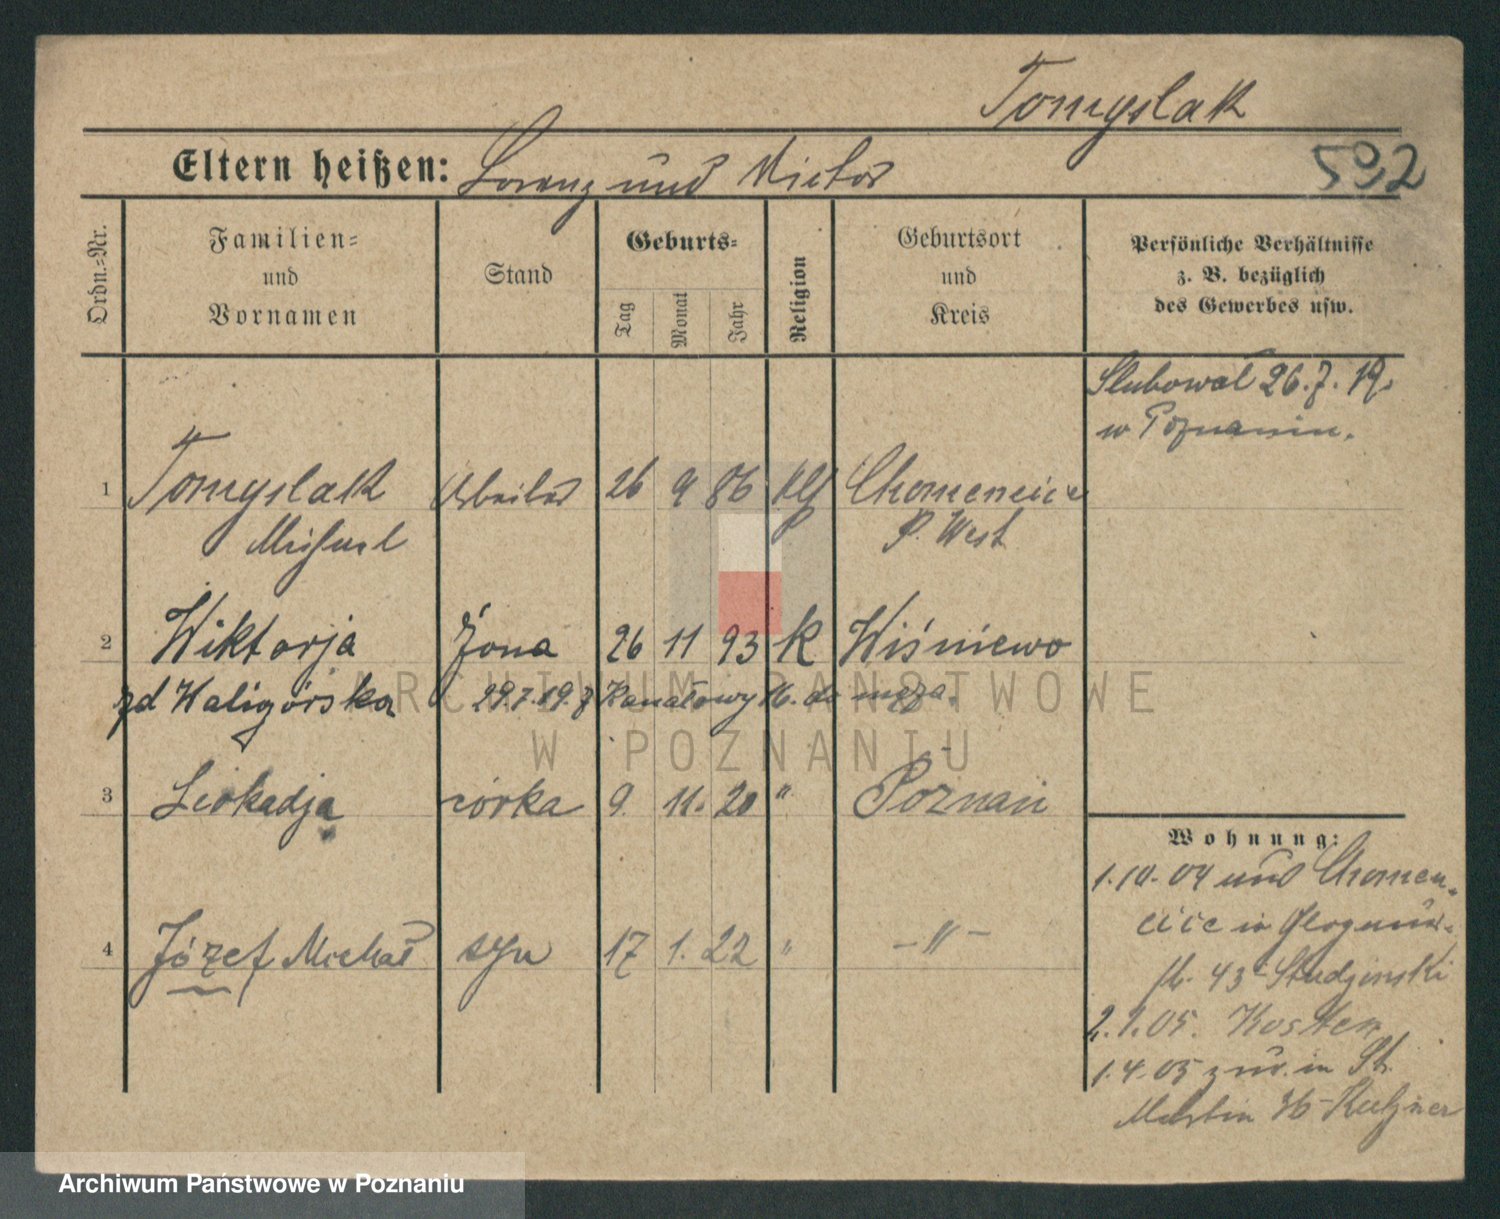 Tomyslak
592
Eltern heißen: Lorenz und Victor
Ordn.=Nr.
Familien=
und
Vornamen
Stand
Geburts=
Tag
Monat
Jahr
Religion
Geburtsort
und
Kreis
Persönliche Verhältnisse
z. B. bezüglich
des Gewerbes usw.
Slubował 26.7.19.
w Poznaniu.
1 Tomyslak Arbeiter 26 9 86 Chomencice
Michael P. West
2 Wiktorja żona 26 11 93 K Wiśniewo
zd Waligórska 29.7.19. z Kanałowy 16. do męża.
3 Leokadja córka 9. 11. 20 " Poznań
Wohnung:
1.10.04 und Chomen-
cice in
43 Studzinski
4 Józef Michał syn 17 1. 22 " -"-
2.1.05. Kosten
1.4.05 zur. in St.
Martin
ARCHIWUM PAŃSTWOWE
W POZNANIU
Archiwum Państwowe w Poznaniu